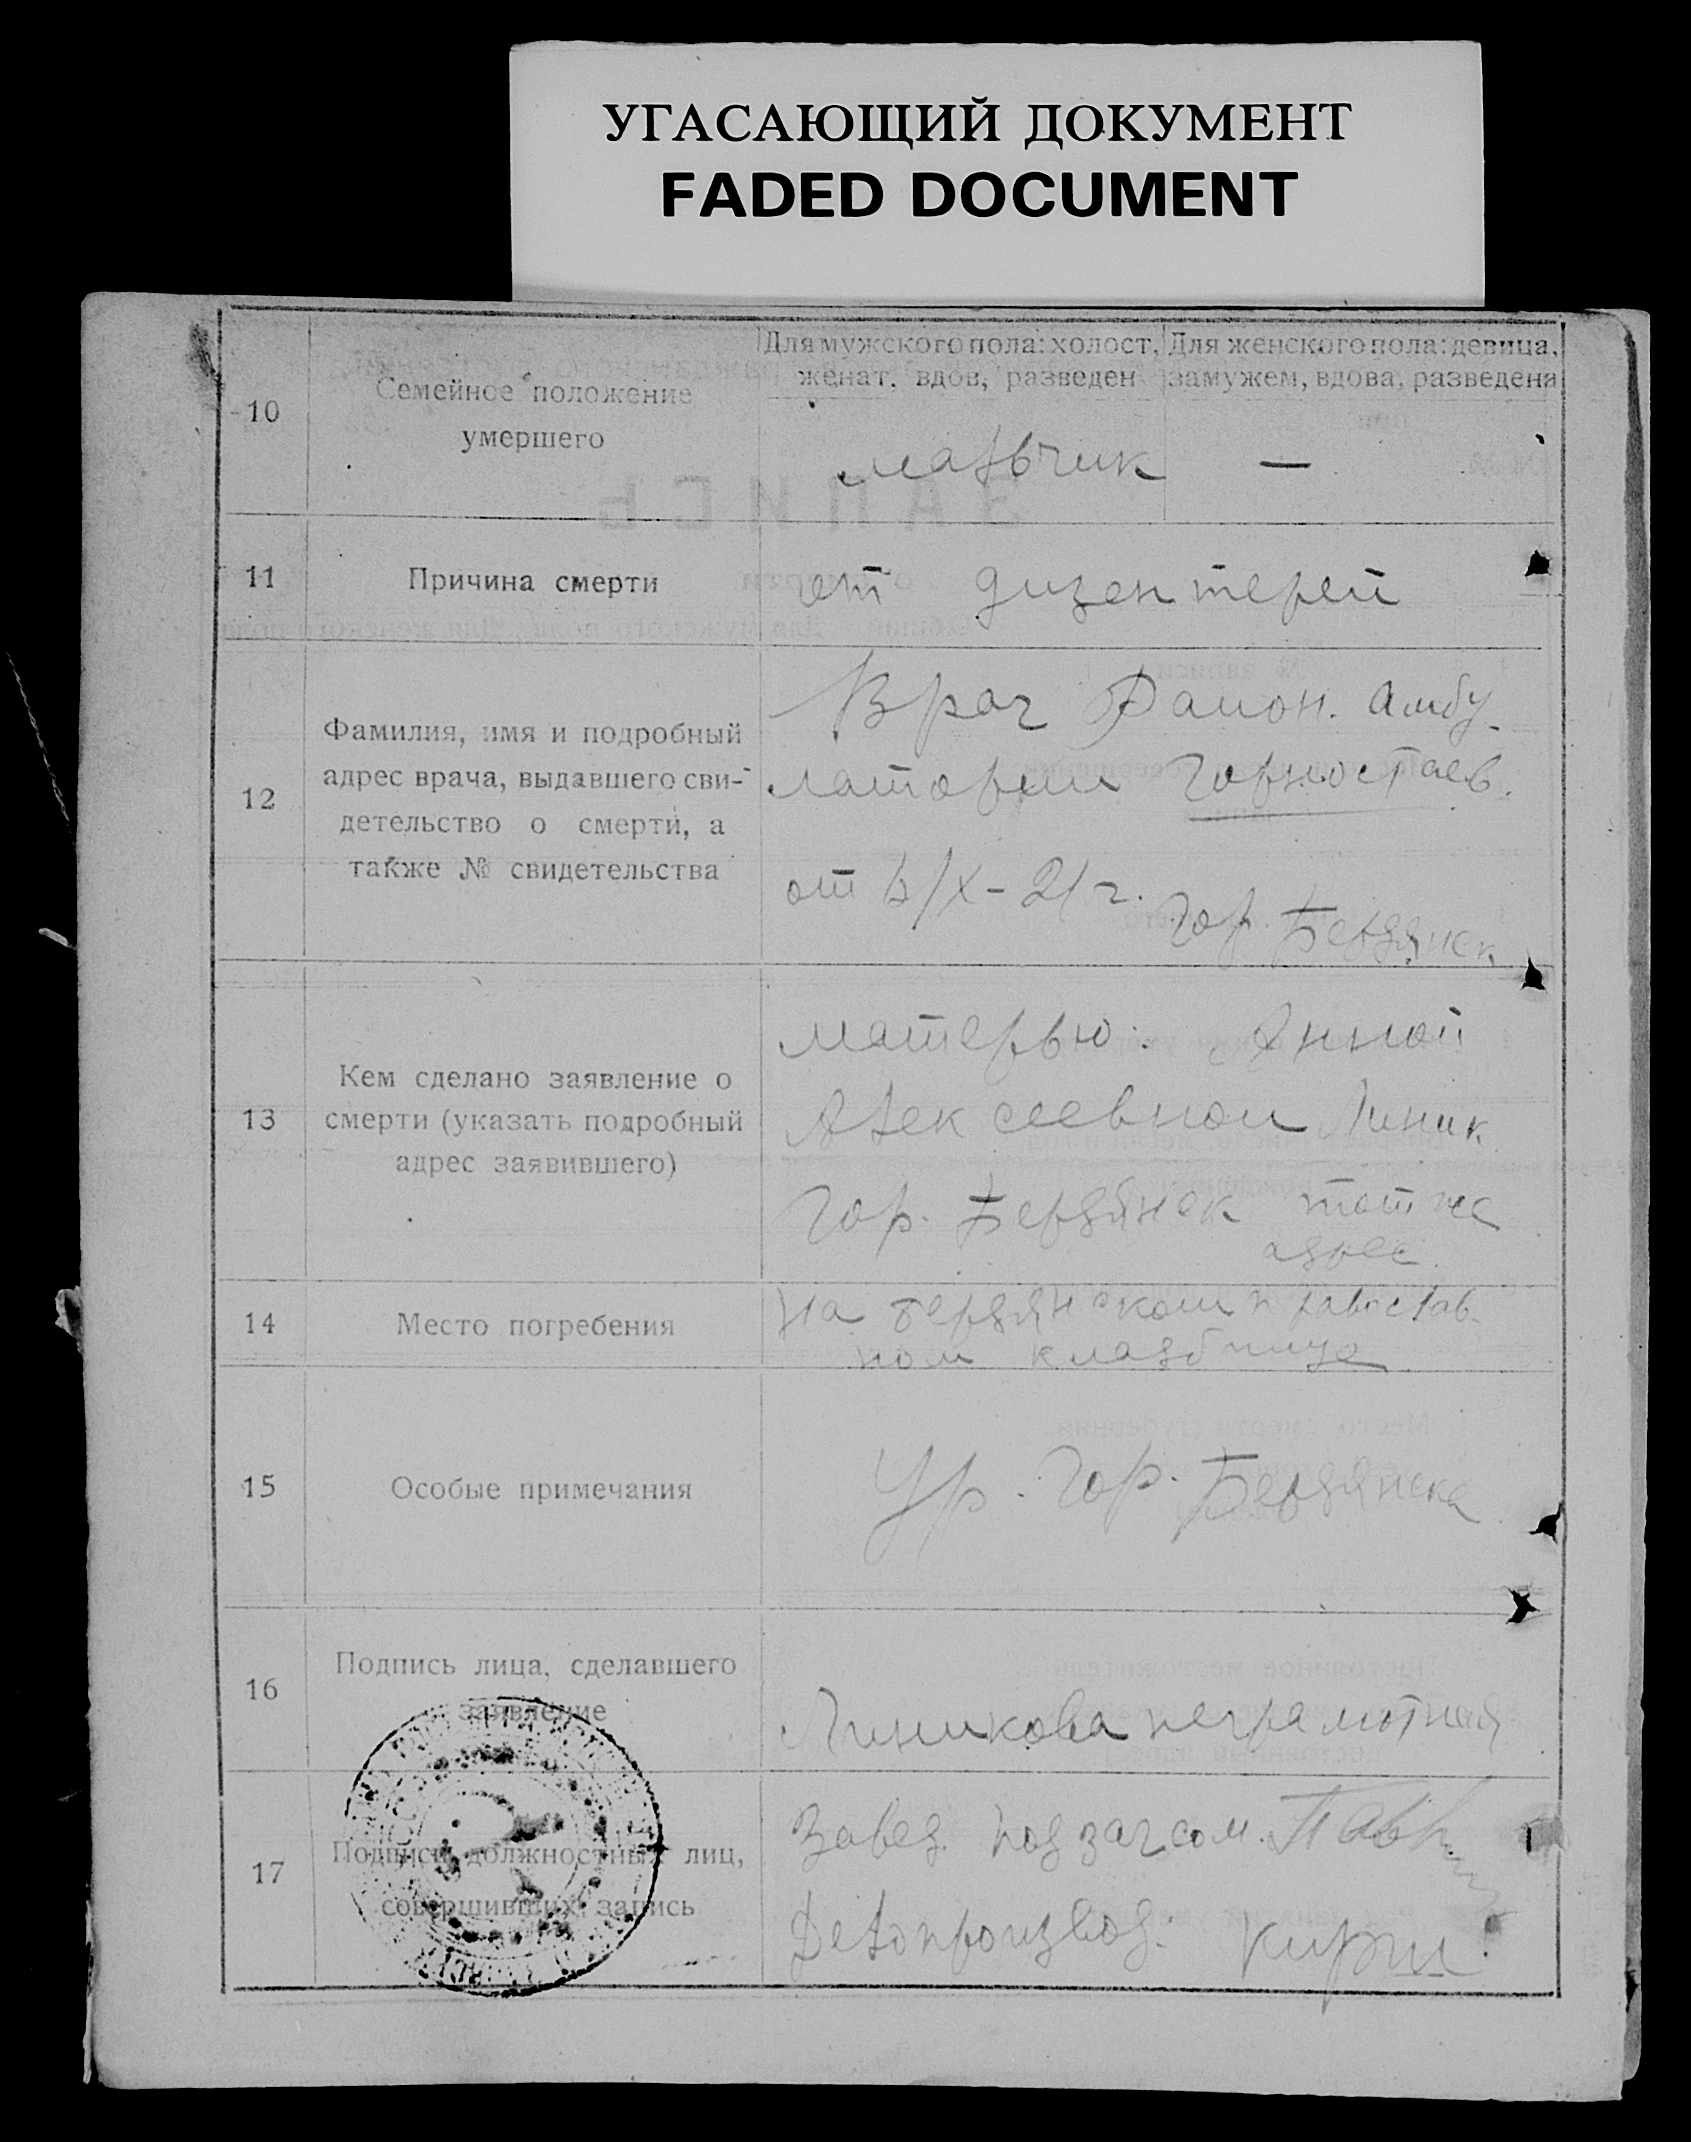 УГАСАЮЩИЙ ДОКУМЕНТ
FADED DOCUMENT
10
Семейное положение
умершего
Для мужского пола: холост,
женат, вдов, разведен
Для женского пола: девица,
замужем, вдова, разведена
мальчик
—
11
Причина смерти
от дизентерей
12
Фамилия, имя и подробный
адрес врача, выдавшего сви-
детельство о смерти, а
также № свидетельства
Врач Район. Амбу-
латории Горностаев.
от /X-21 г.
Гор. Бердянск
13
Кем сделано заявление о
смерти (указать подробный
адрес заявившего)
матерью: Анной
Алексеевной Линик
Гор. Бердянск тот же
адрес.
14
Место погребения
На бердянском православ-
ном кладбище
15
Особые примечания
Ур. Гор. Бердянска
16
Подпись лица, сделавшего
заявление
Линикова неграмотная
17
Подписи должностных лиц,
совершивших запись
Завед. подзагсом.
Делопроизвод: Кирш